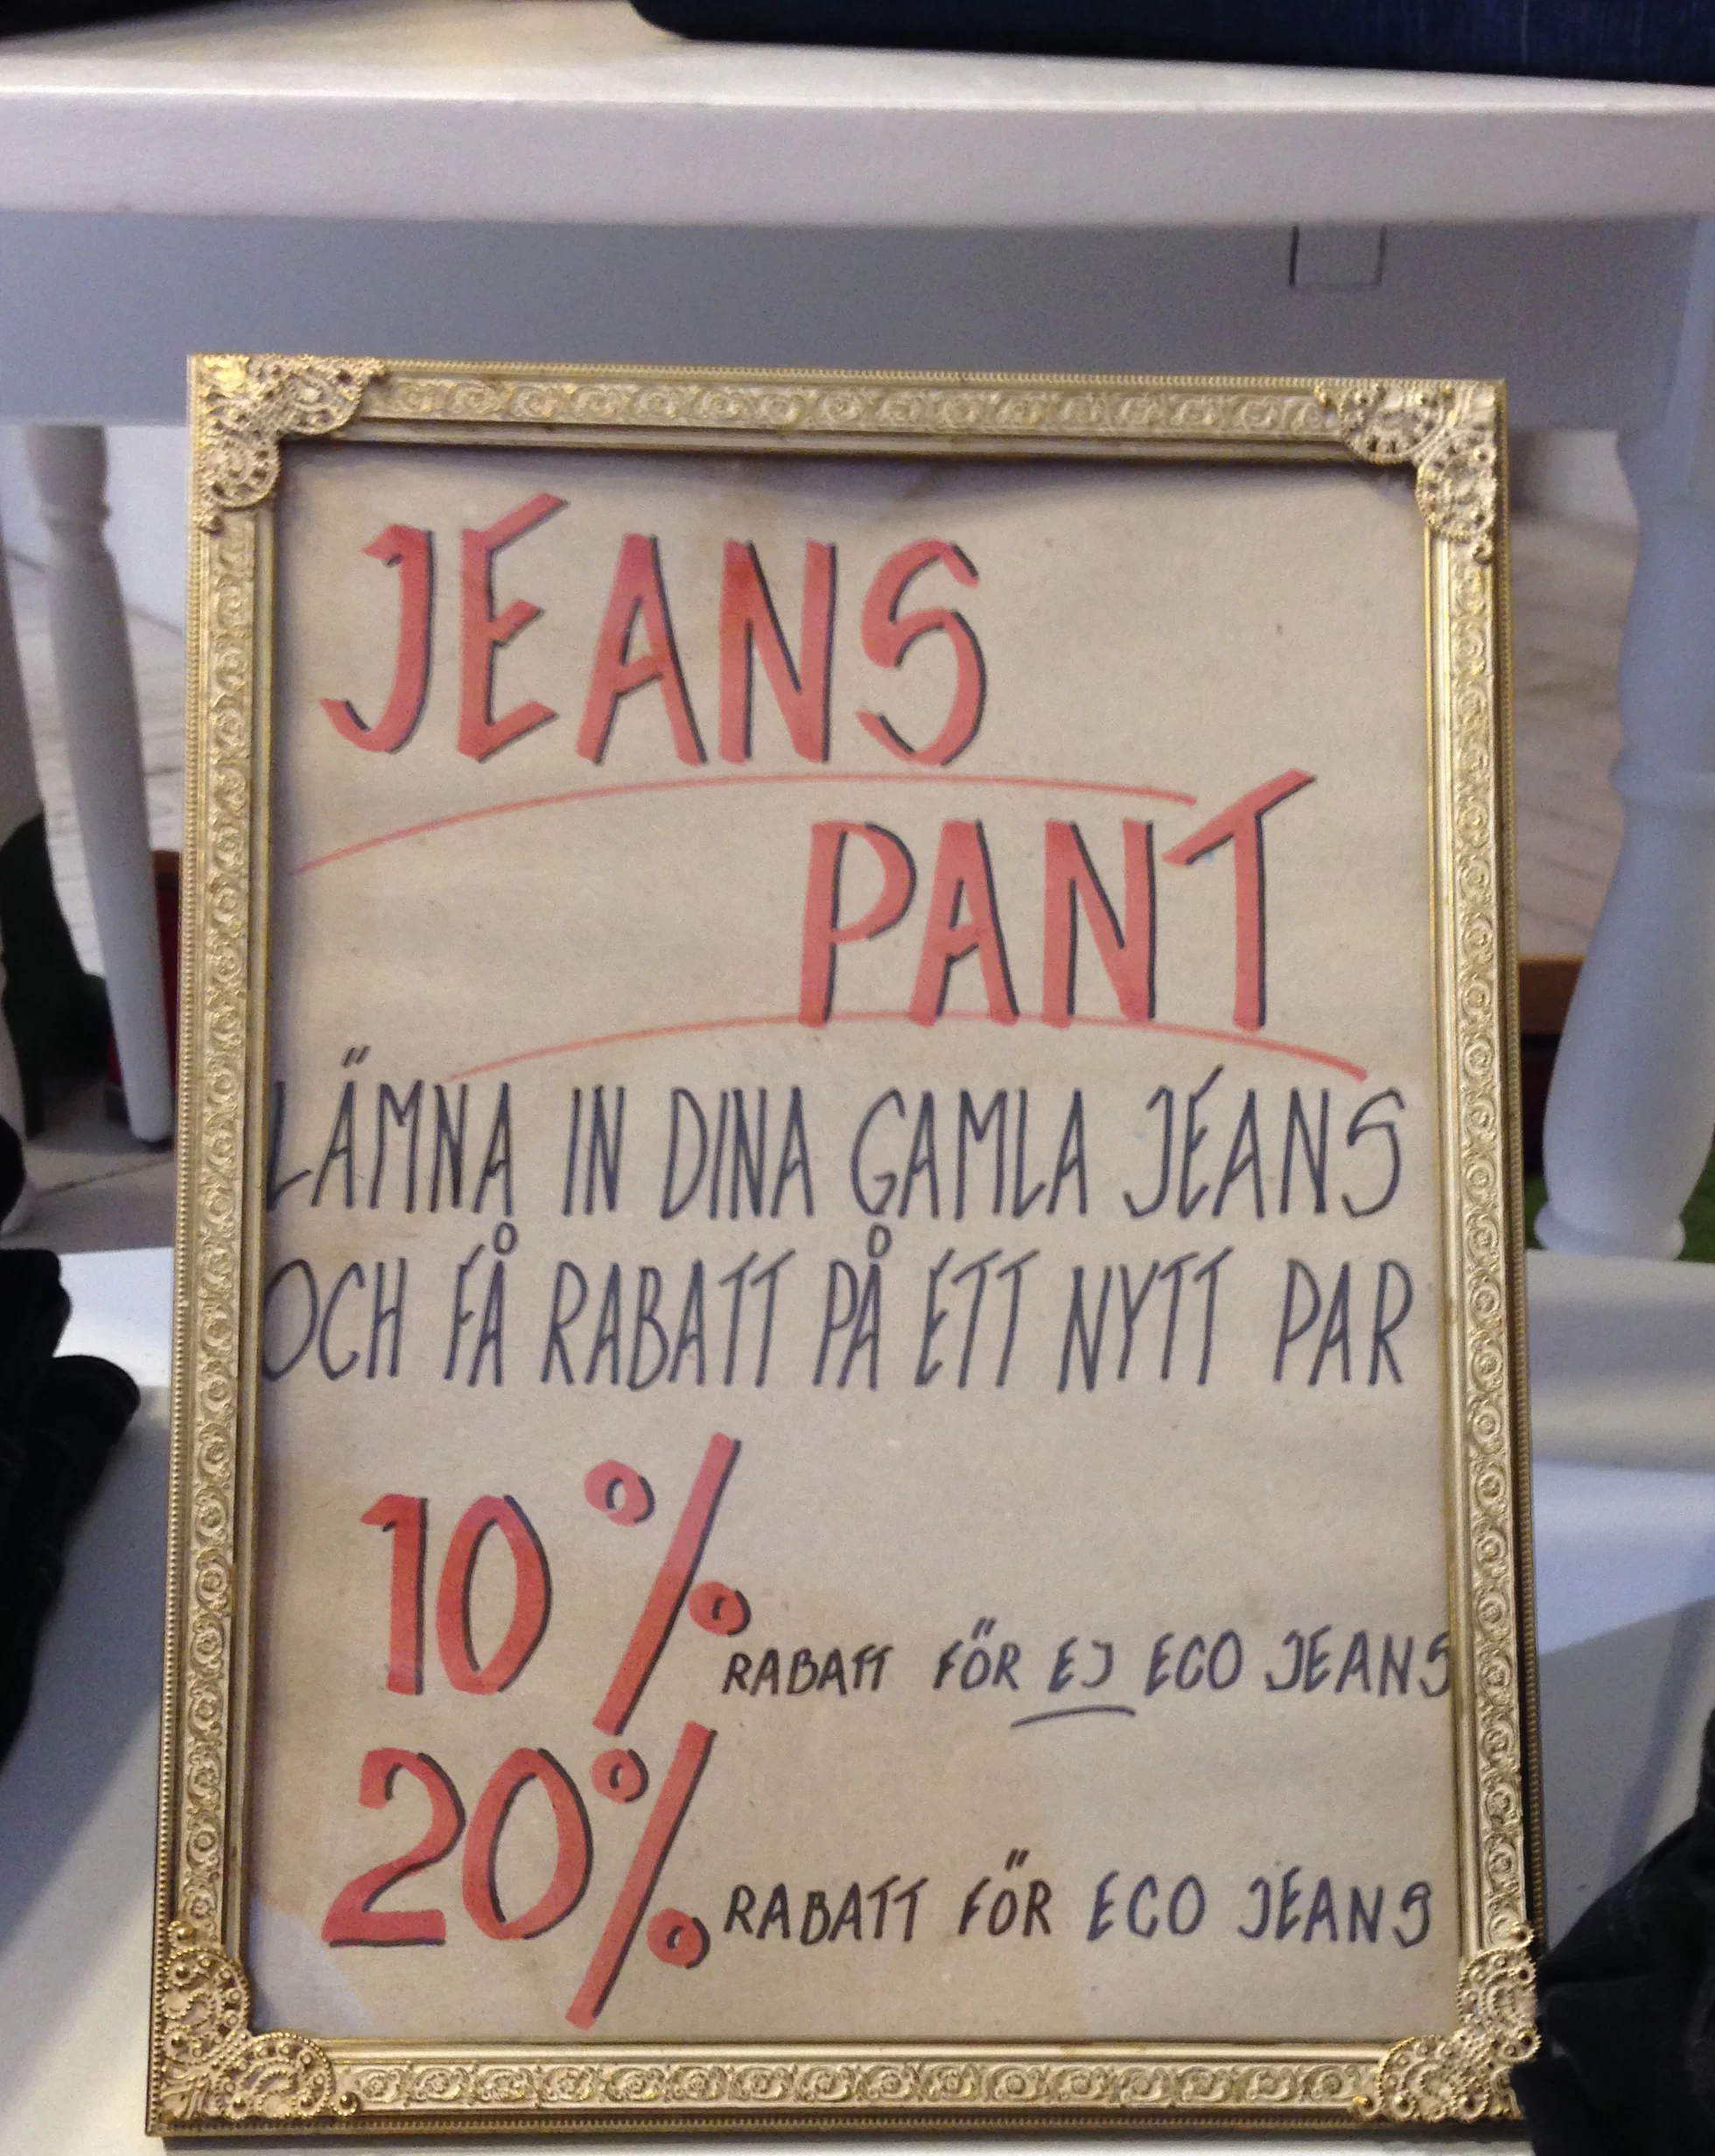 JEANS
PANT
LÄMNA IN DINA GAMLA JEANS
OCH FÅ RABATT PÅ ETT NYTT PAR
10% RABATT FÖR EJ ECO JEANS
20% RABATT FÖR ECO JEANS